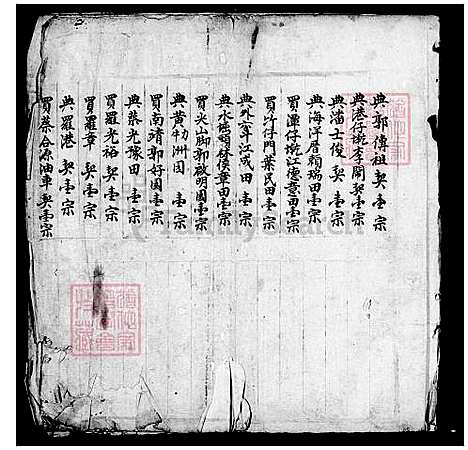 典郭傳祖契壹宗
典港仔墘李開契壹宗
典潘士俊契壹宗
典海洋厝賴瑞田壹宗
買潭仔墘江德意田壹宗
買竹仔門葉民田壹宗
典外六年江成田壹宗
典水堀頭林英章田壹宗
買火山脚郭啟明園壹宗
典黄初洲園壹宗
買南靖郭好園壹宗
典蔡光豫田壹宗
買羅光裕契壹宗
買羅章契壹宗
典羅港契壹宗
買蔡合源油車契壹宗